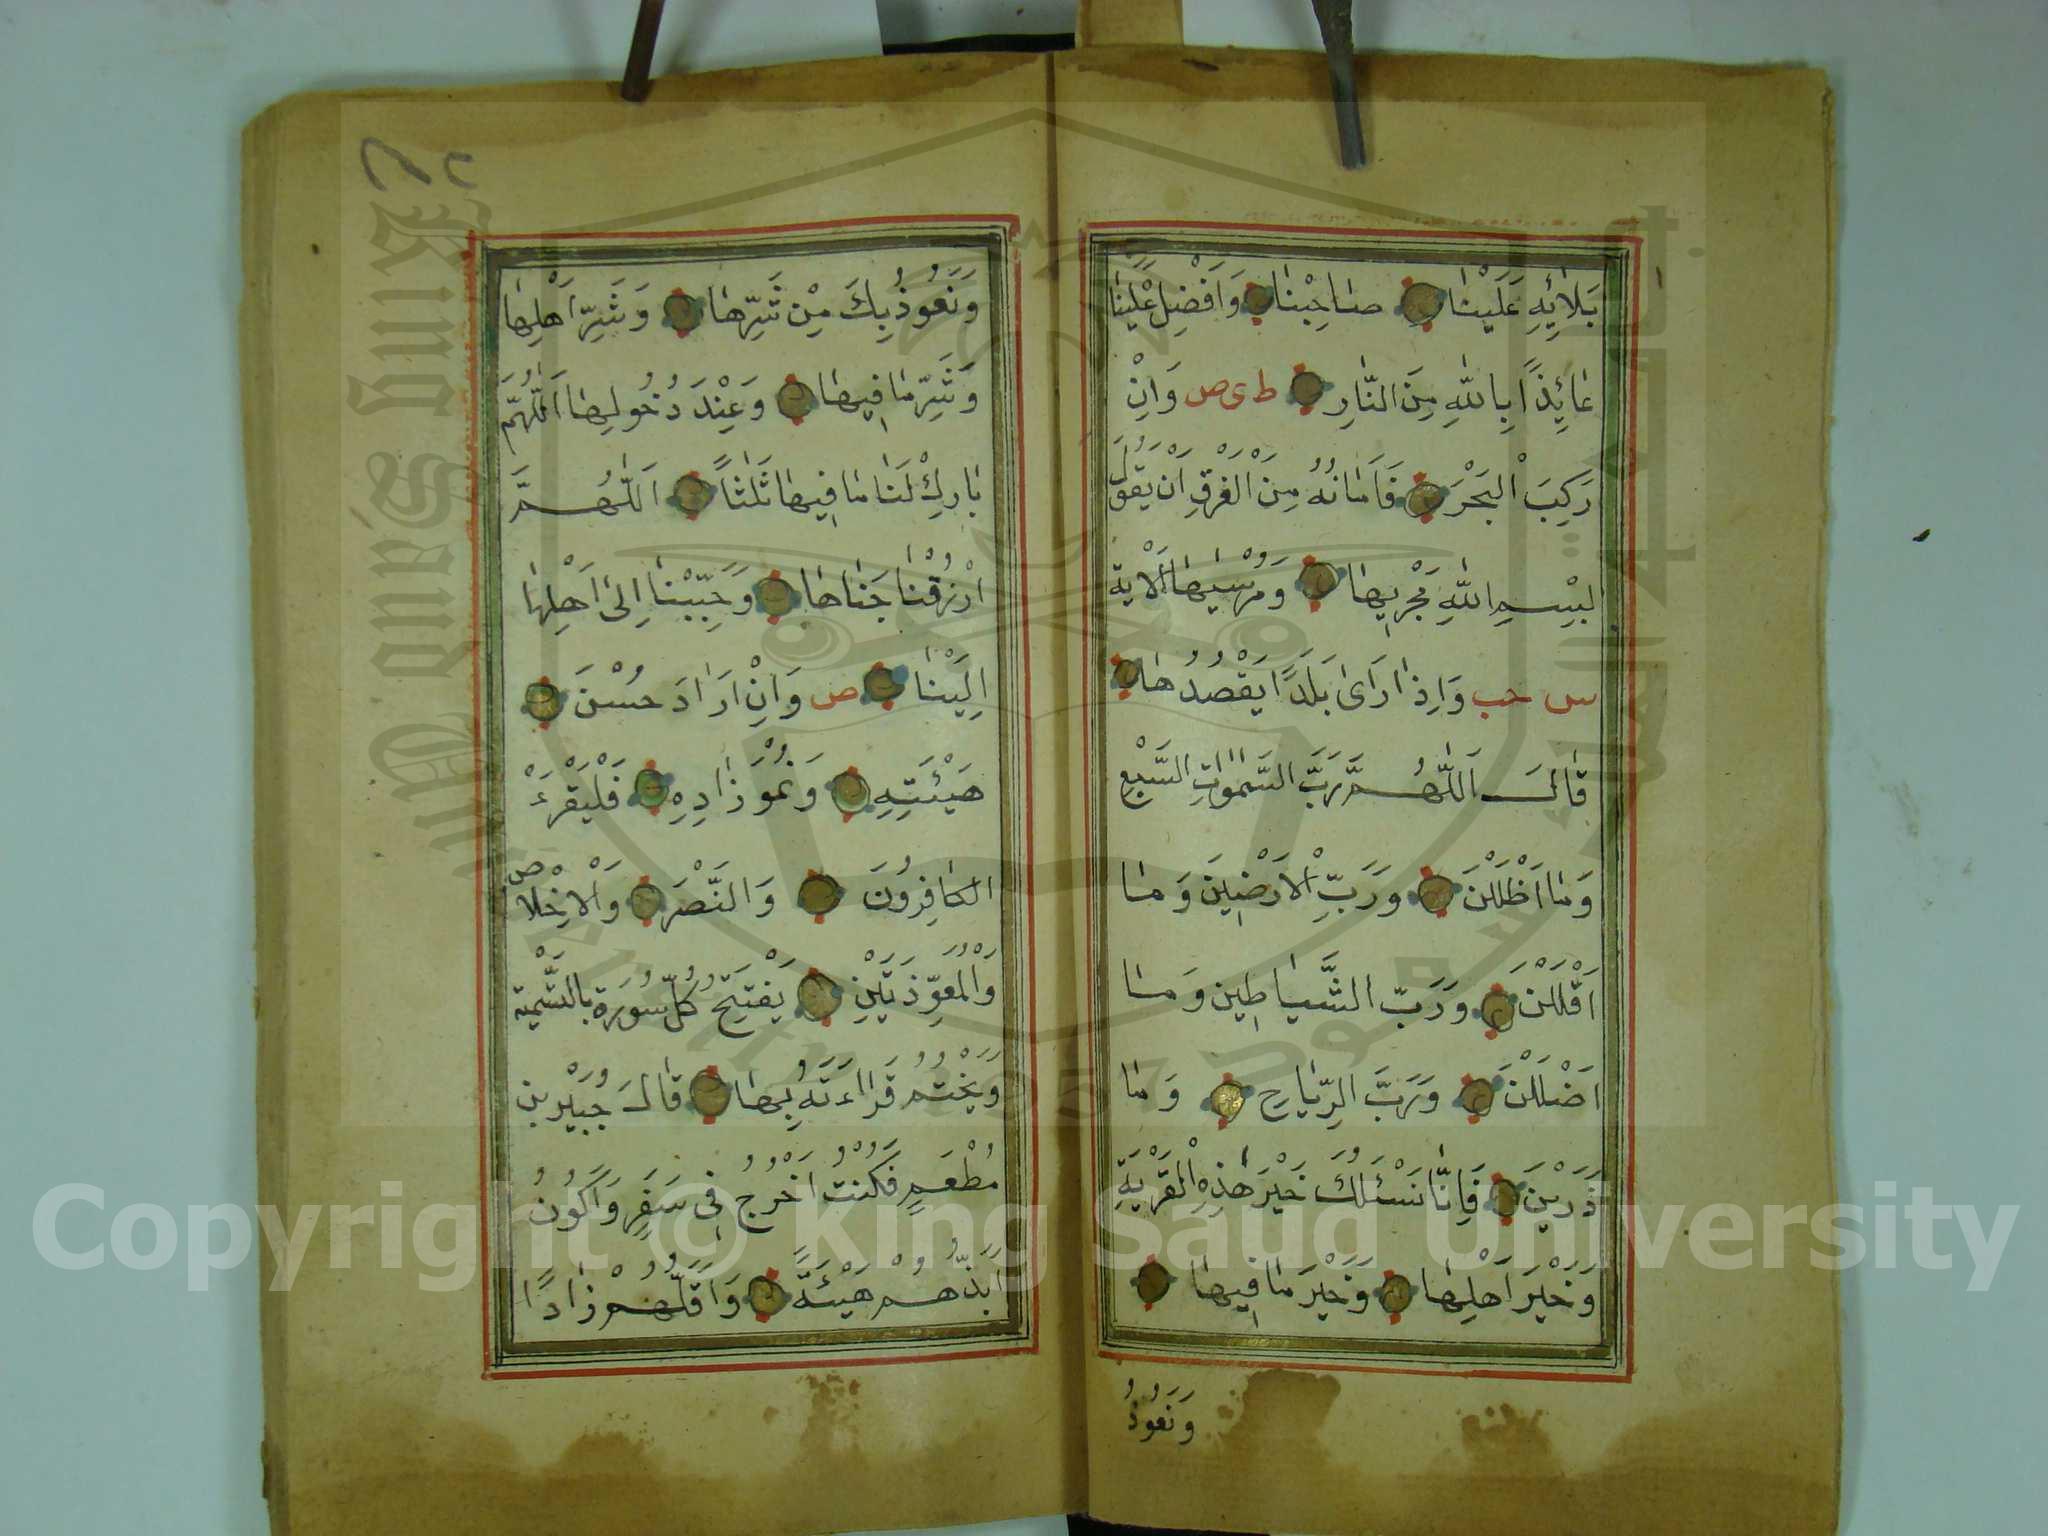 بَلَائِهِ عَلَيْنَا صَاحِبْنَا وَاَفْضِلْ عَلَيْنَا
عَائِذًا بِاللّٰهِ مِنَ النَّارِ ط ى ص وَاِنْ
رَكِبَ الْبَحْرَ فَاَمَانُهُ مِنَ الْغَرَقِ اَنْ يَقُولَ
بِسْمِ اللّٰهِ مَجْرٖيهَا وَمُرْسٰيهَا اَلْاٰيَة
س حب وَاِذَا رَاَىٰ بَلَدًا يَقْصُدُهَا
قَالَ اَللّٰهُمَّ رَبَّ السَّمٰوَاتِ السَّبْعِ
وَمَا اَظْلَلْنَ وَرَبَّ الْاَرَضٖينَ وَمَا
اَقْلَلْنَ وَرَبَّ الشَّيَاطٖين وَمَا
اَضْلَلْنَ وَرَبَّ الرِّيَاحِ وَمَا
ذَرَيْنَ فَاِنَّا نَسْئَلُكَ خَيْرَ هٰذِهِ الْقَرْيَةِ
وَخَيْرَ اَهْلِهَا وَخَيْرَ مَا فٖيهَا
وَنَعُوذُ
وَنَعُوذُ بِكَ مِنْ شَرِّهَا وَشَرِّ اَهْلِهَا
وَشَرِّ مَا فٖيهَا وَعِنْدَ دُخُولِهَا اَللّٰهُمَّ
بَارِكْ لَنَا مَا فٖيهَا ثَلٰثًا اَللّٰهُمَّ
ارْزُقْنَا جَنَاهَا وَحَبِّبْنَا اِلىٰ اَهْلِهَا
اِلَيْنَا ص وَاِنْ اَرَادَ حُسْنَ
هَيْئَتِهِ وَنُمُوَّ زَادِهِ فَلْيَقْرَءْ
الكَافِرُونَ وَالنَّصْرَ وَالْاِخْلَاص
وَالْمُعَوِّذَتَيْنِ يَفْتَتِحُ كُلَّ سُورَةٍ بِالتَّسْمِيَة
وَيَخْتِمُ قَرَاءَتَهُ بِهَا قَالَ جُبَيْرُ بْن
مُطْعِمٍ فَكُنْتُ اَخْرُجُ فٖى سَفَرٍ وَاَكُونُ
اَبَذَّهُمْ هَيْئَةً وَاَقَلَّهُمْ زَادًا
King Saud University
1957
Copyright © King Saud University